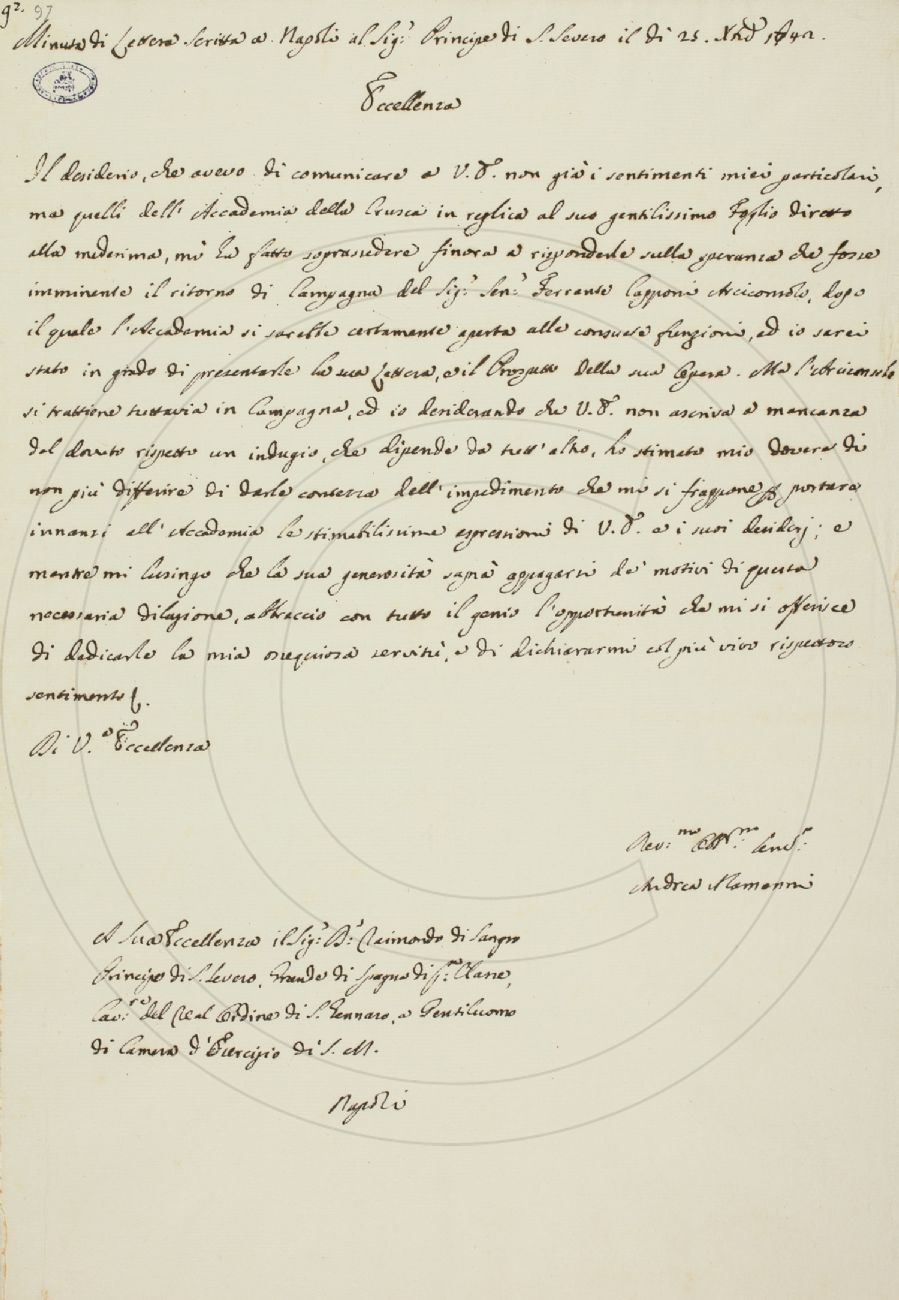 92. 97
Minuta di Lettera Scritta a Napoli al Sig.r Principe di S. Severo il dì 25. 
Eccellenza
Il desiderio, che avevo di comunicare a V.E. non già i sentimenti miei particolari,
ma quelli dell' Accademia della Crusca in replica al suo gentilissimo Foglio diretto
alla medesima, mi ha fatto soprassedere finora a risponderle sulla speranza che fosse
imminente il ritorno di Campagna del Sig.r Sen.r Ferrante Capponi Arciconsolo, dopo
il quale l'Accademia si sarebbe certamente aperta alle consuete funzioni, ed io sarei
stato in grado di presentarle la sua Lettera, e il Prospetto della sua Opera. Ma l'Arciconsolo
si trattiene tuttavia in Campagna, ed io desiderando che V.E. non ascriva a mancanza
del dovuto rispetto un indugio, che dipende da tutt'altro, ho stimato mio dovere di
non più differire di darle contezza dell'impedimento che mi si frappone p portare
innanzi all'Accademia le stimabilissime espressioni di V.E. e i suoi desiderj; e
mentre mi lusingo che la sua generosità saprà appagarsi de' motivi di questa
necessaria dilazione, abbraccio con tutto il genio l'opportunità che mi si offerisce
di dedicarle la mia ossequiosa servitù, e di dichiararmi col più vivo rispettoso
sentimento
Di V.a Eccellenza
Dev:mo Obb:mo Serv.r:
Andrea Alamanni
A Sua Eccellenza il Sig.r D: Raimondo di Sangro
Principe di S. Severo, Grande di Spagna di p.ma Classe,
Cav:re del Real Ordine di S. Gennaro, e Gentiluomo
di Camera d'Esercizio di S.M.
Napoli